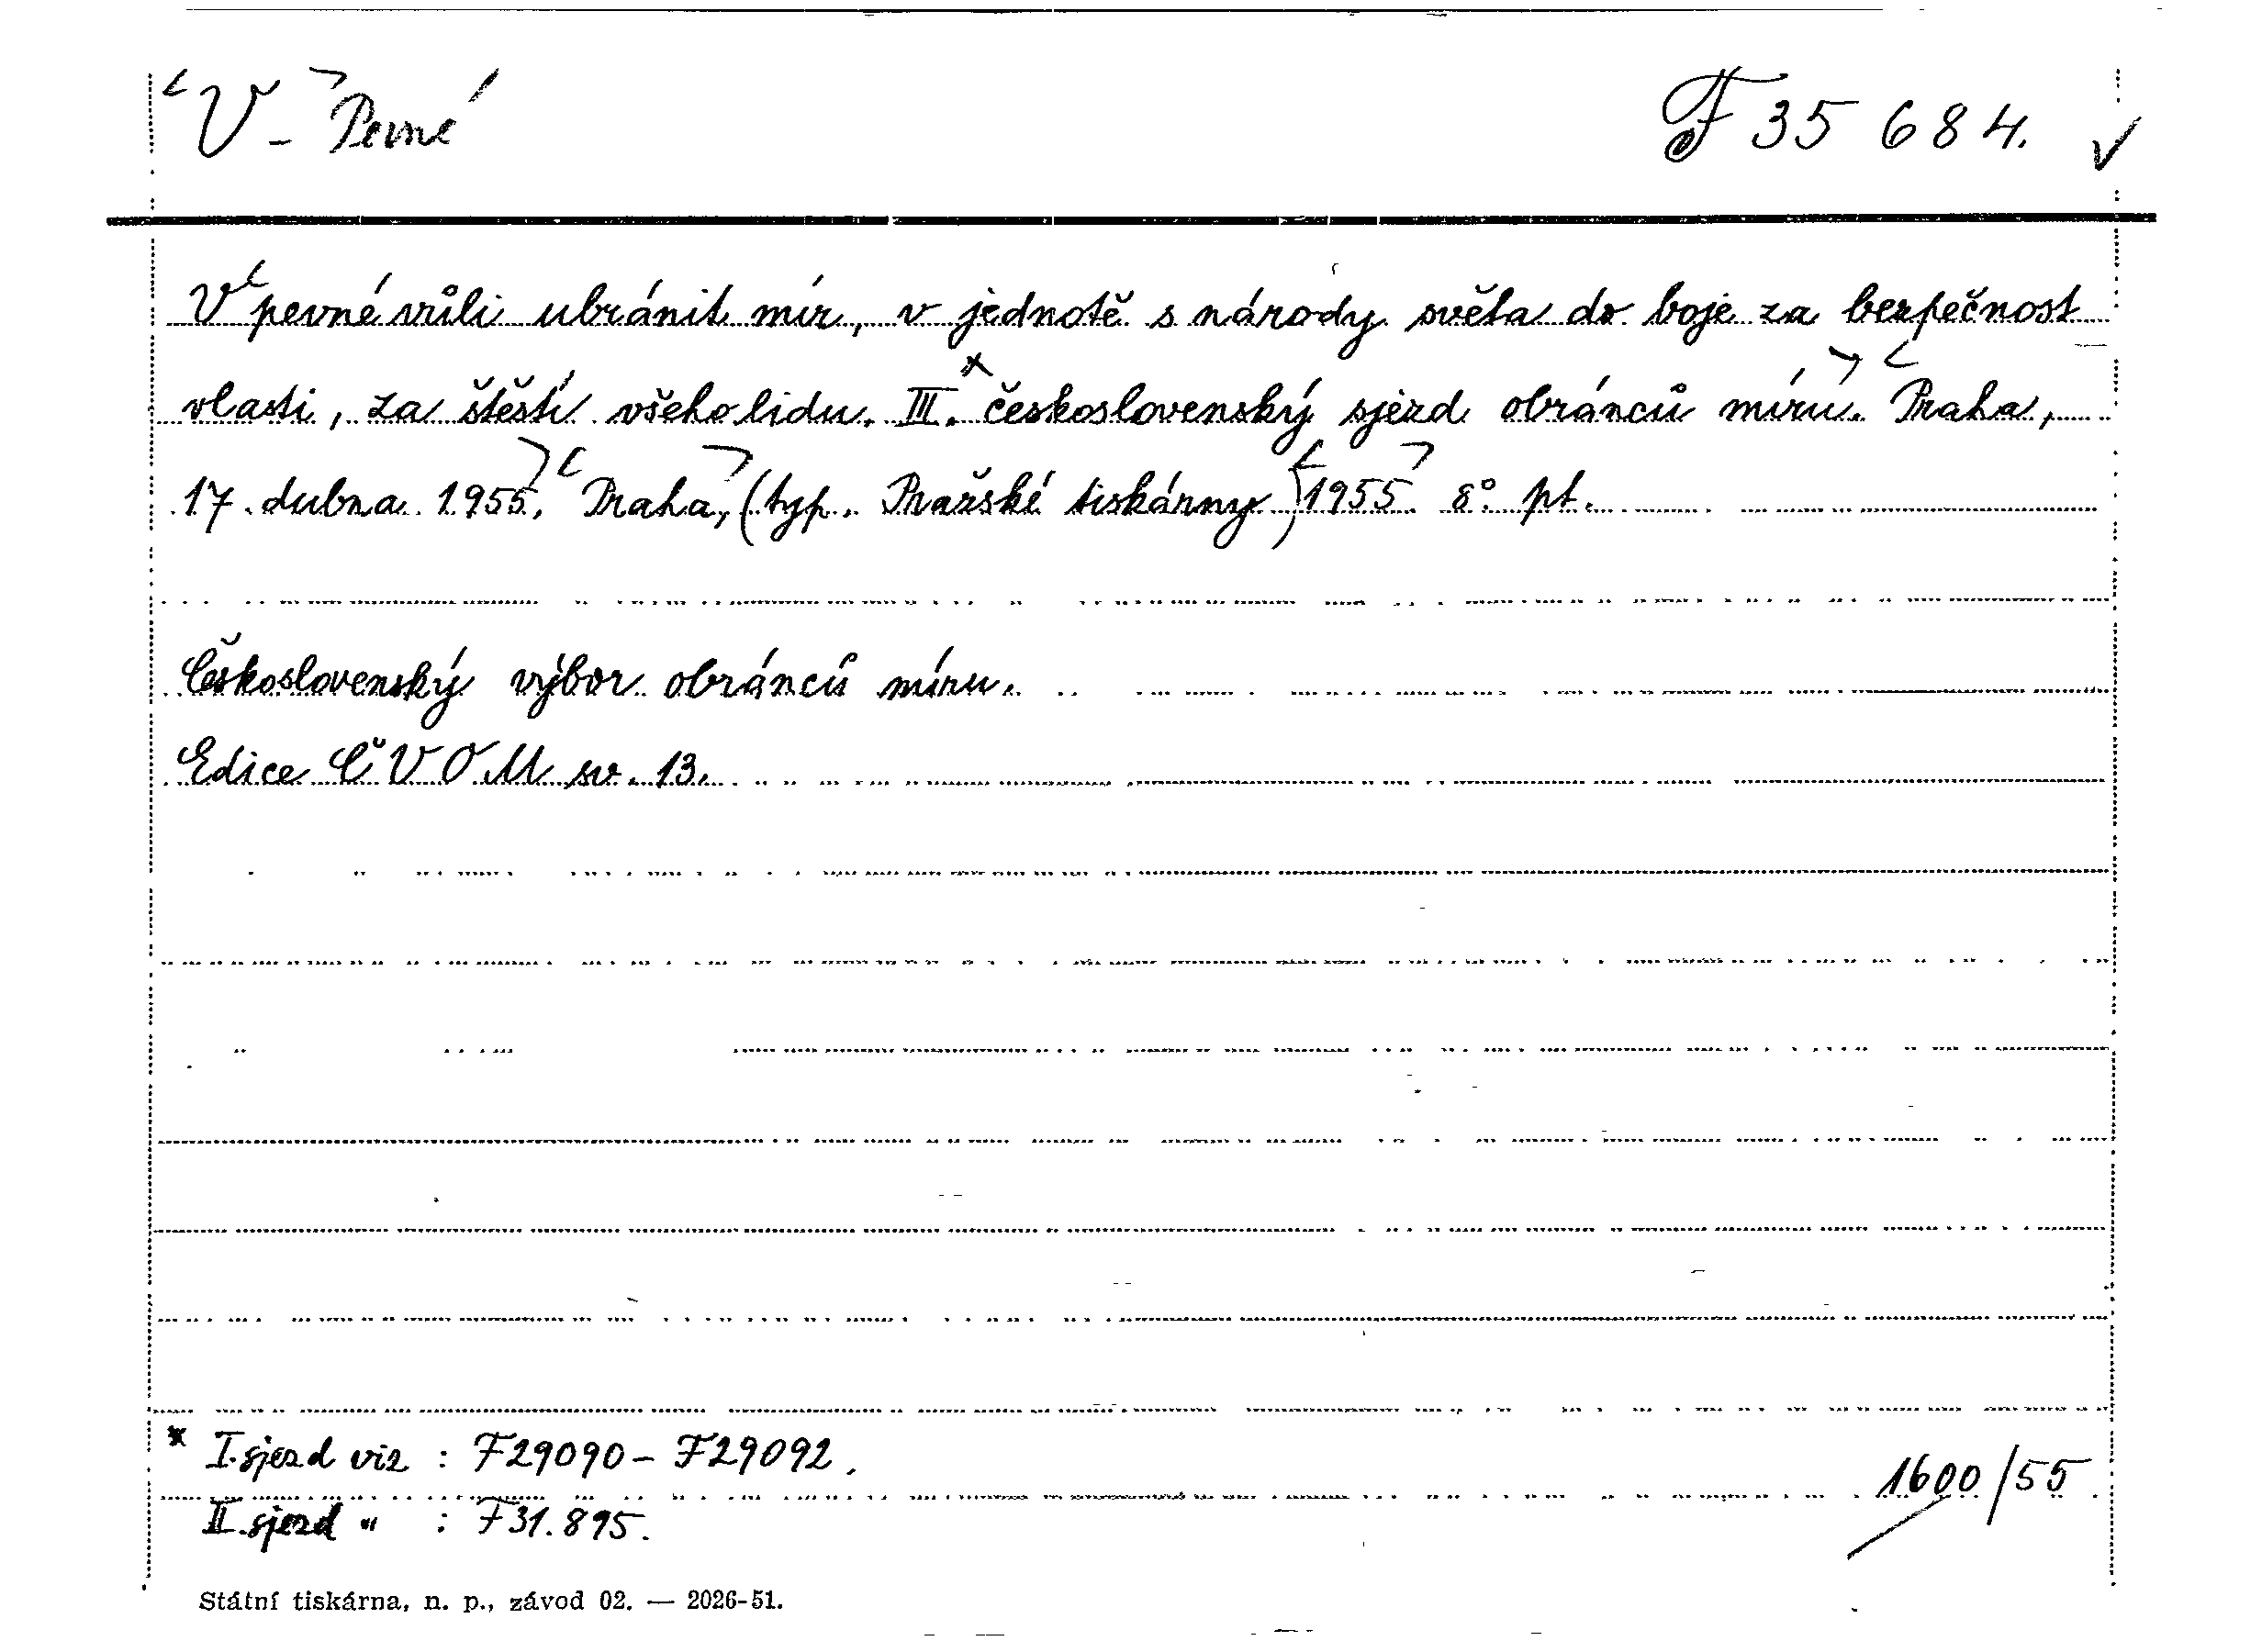 V - Pevné
F 35 684.
V pevné vůli ubránit mír, v jednotě s národy světa do boje za bezpečnost
vlasti, za štěstí všeho lidu. III.* československý sjezd obránců míru. Praha,
17. dubna 1955, Praha, (typ. Pražské tiskárny) 1955. 8° pt.
Československý výbor obránců míru.
Edice ČVOM sv. 13.
* I. sjezd viz : F29090 - F29092.
1600/55
II. sjezd " : F31.895.
Státní tiskárna, n. p., závod 02. — 2026-51.